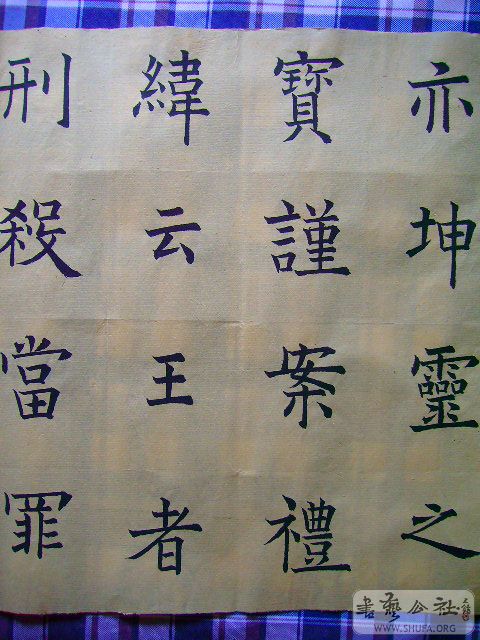 亦坤靈之
寶謹案禮
緯云王者
刑殺當罪
書藝公社
WWW.SHUFA.ORG